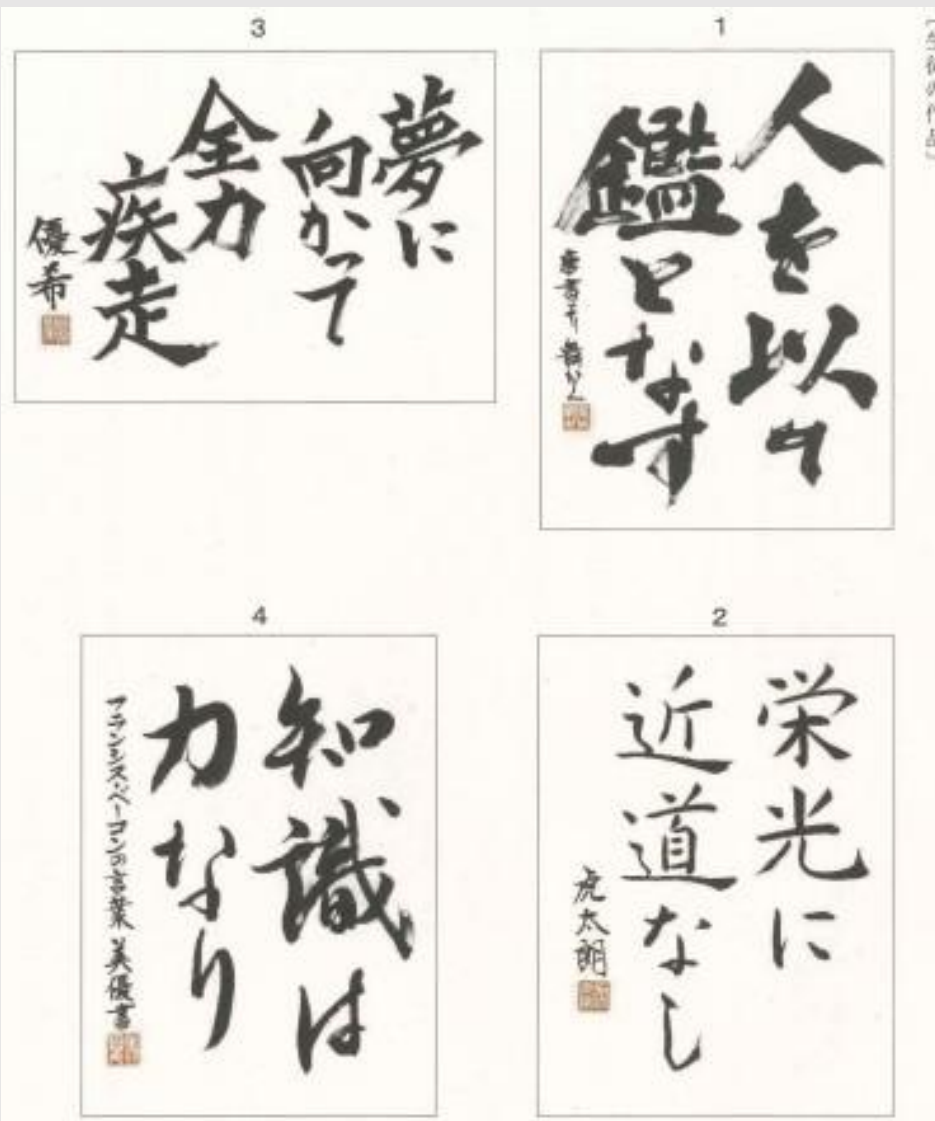 〔生徒の作品〕
1
人を以て
鑑となす
2
栄光に
近道なし
虎太朗
3
夢に
向かって
全力
疾走
優希
4
知識は
力なり
フランシス・ベーコンの言葉 美優書